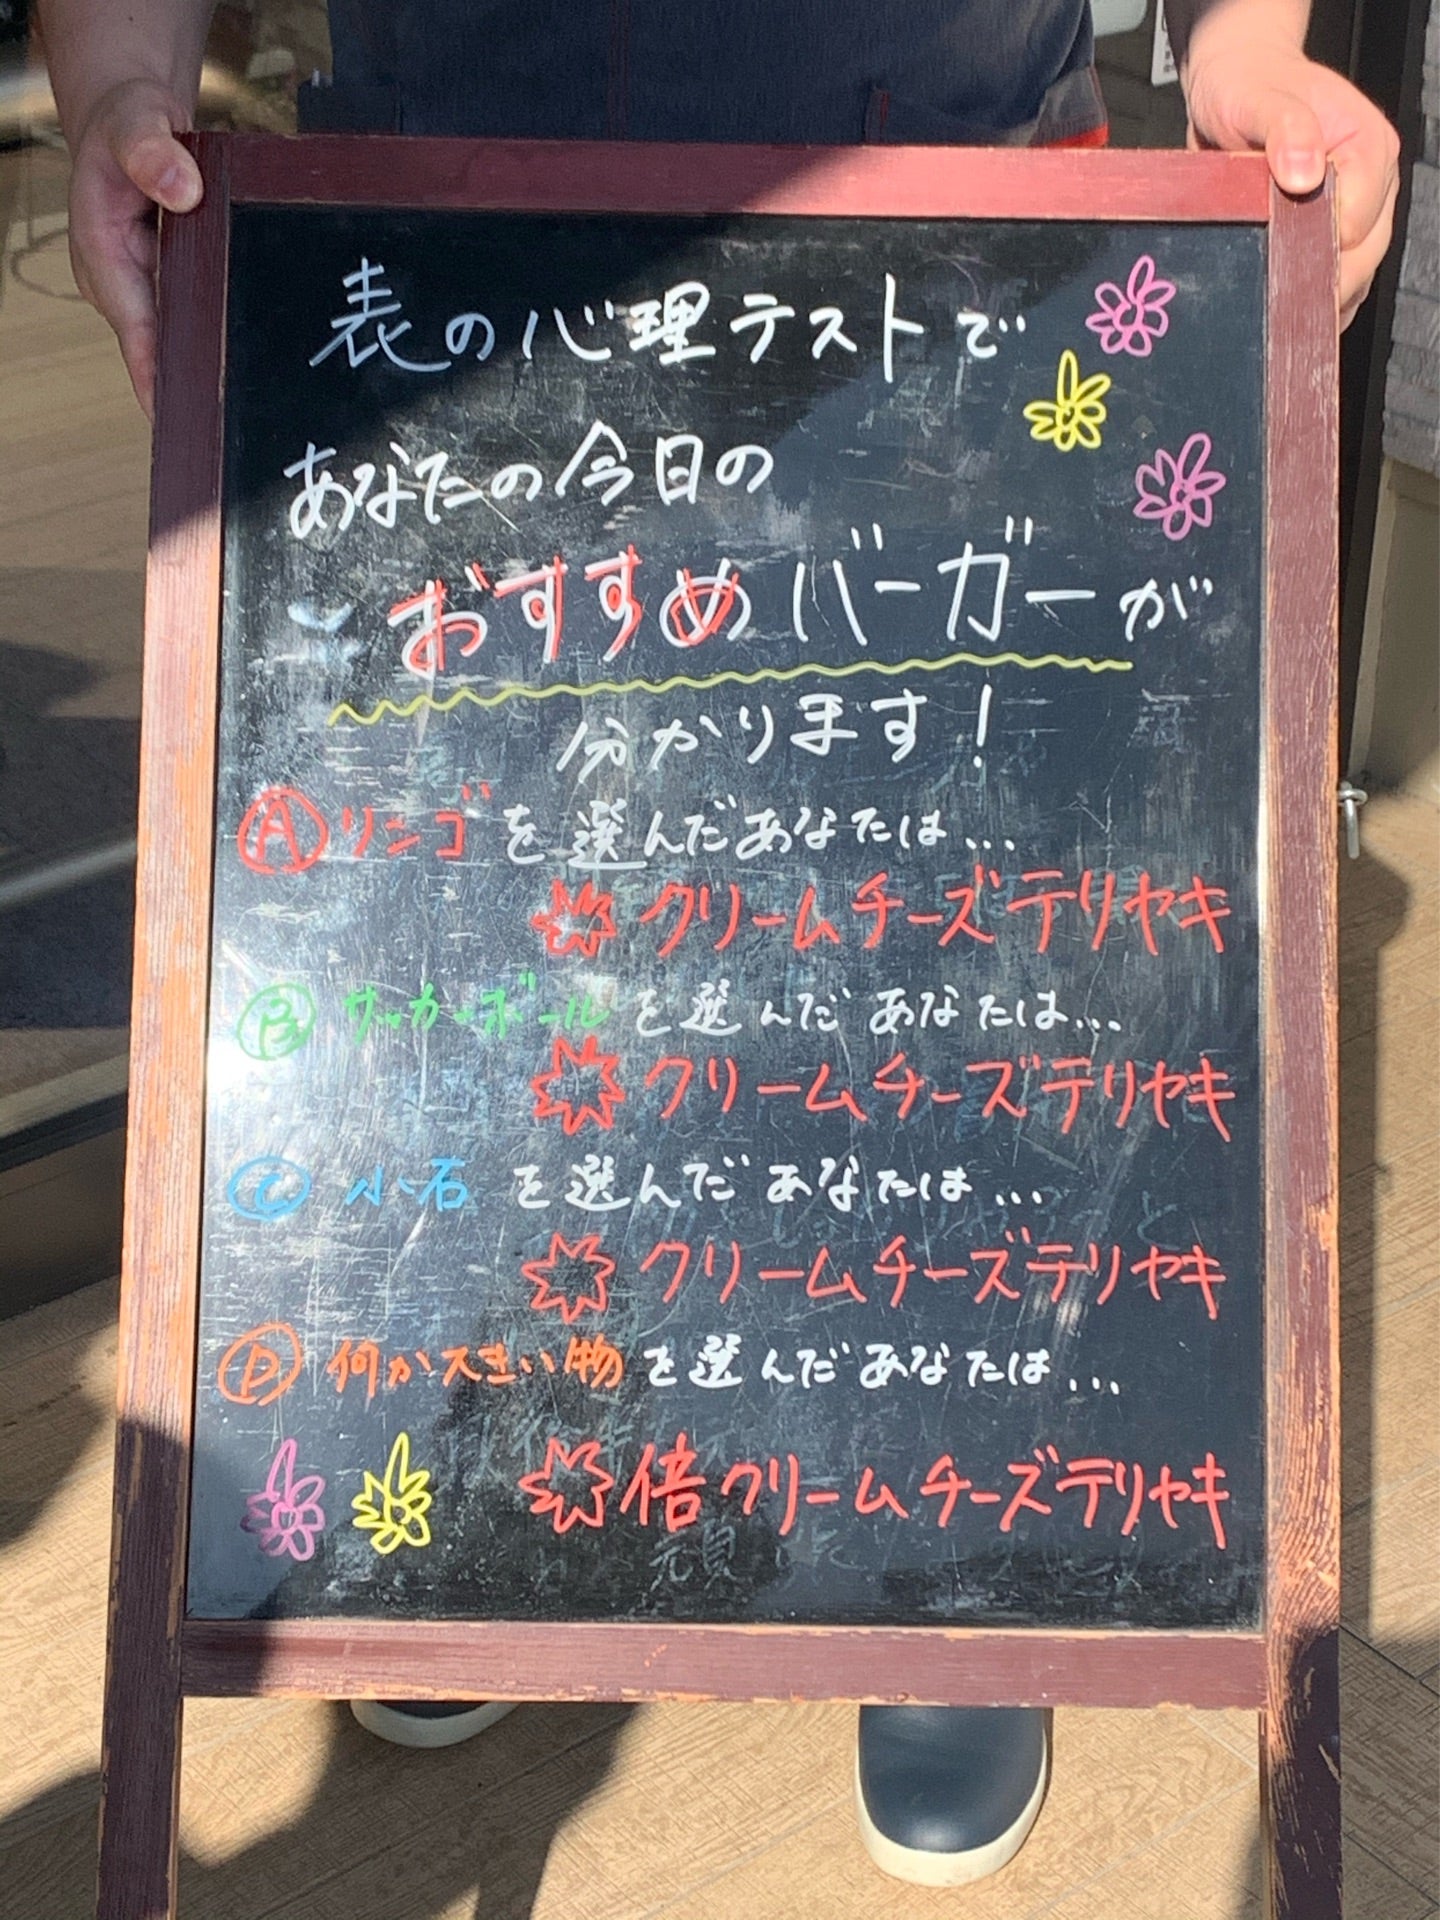 表の心理テストで
あなたの今日の
おすすめバーガーが
分かります!
Ⓐリンゴを選んだあなたは...
クリームチーズテリヤキ
Ⓑサッカーボールを選んだあなたは...
クリームチーズテリヤキ
Ⓒ小石を選んだあなたは...
クリームチーズテリヤキ
Ⓓ何か大きい物を選んだあなたは...
倍クリームチーズテリヤキ